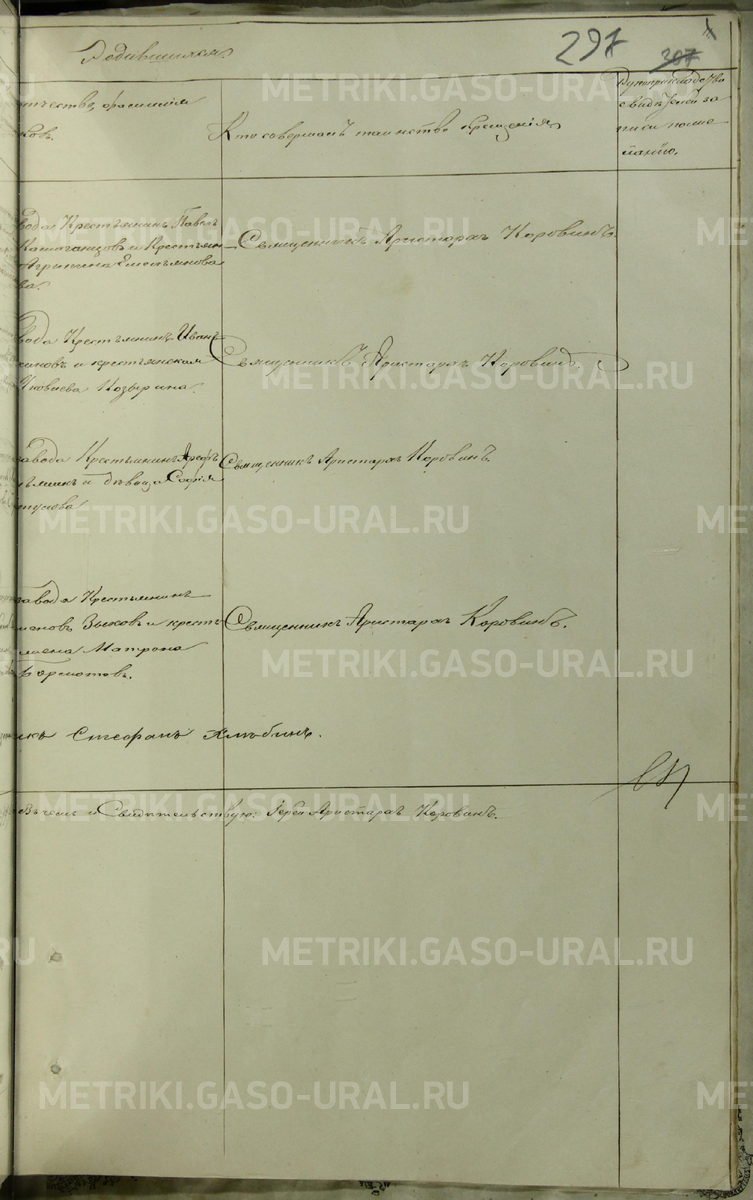 Родившихся
297
307
отчество, фамилія
ковъ.
Кто совершалъ таинство крещенія
свидѣтелей за
писи по же
ланію.
вода Крестьянинъ Павелъ
и Крестьян
Агрипина Емельянова
ва.
Священникъ Аристархъ Коровинъ
вода Крестьянинъ Иванъ
новъ и крестьянская
Яковлева Козырина.
Священникъ Аристархъ Коровинъ.
завода Крестьянинъ
и дѣвица Софія
Священникъ Аристархъ Коровинъ.
завода Крестьянинъ
Зыковъ и кресть
Матрона
Бормотовъ.
Священникъ Аристархъ Коровинъ.
Стефанъ Хлѣбинъ.
Свидѣтельствую: Іерей Аристархъ Коровинъ.
METRIKI.GASO-URAL.RU